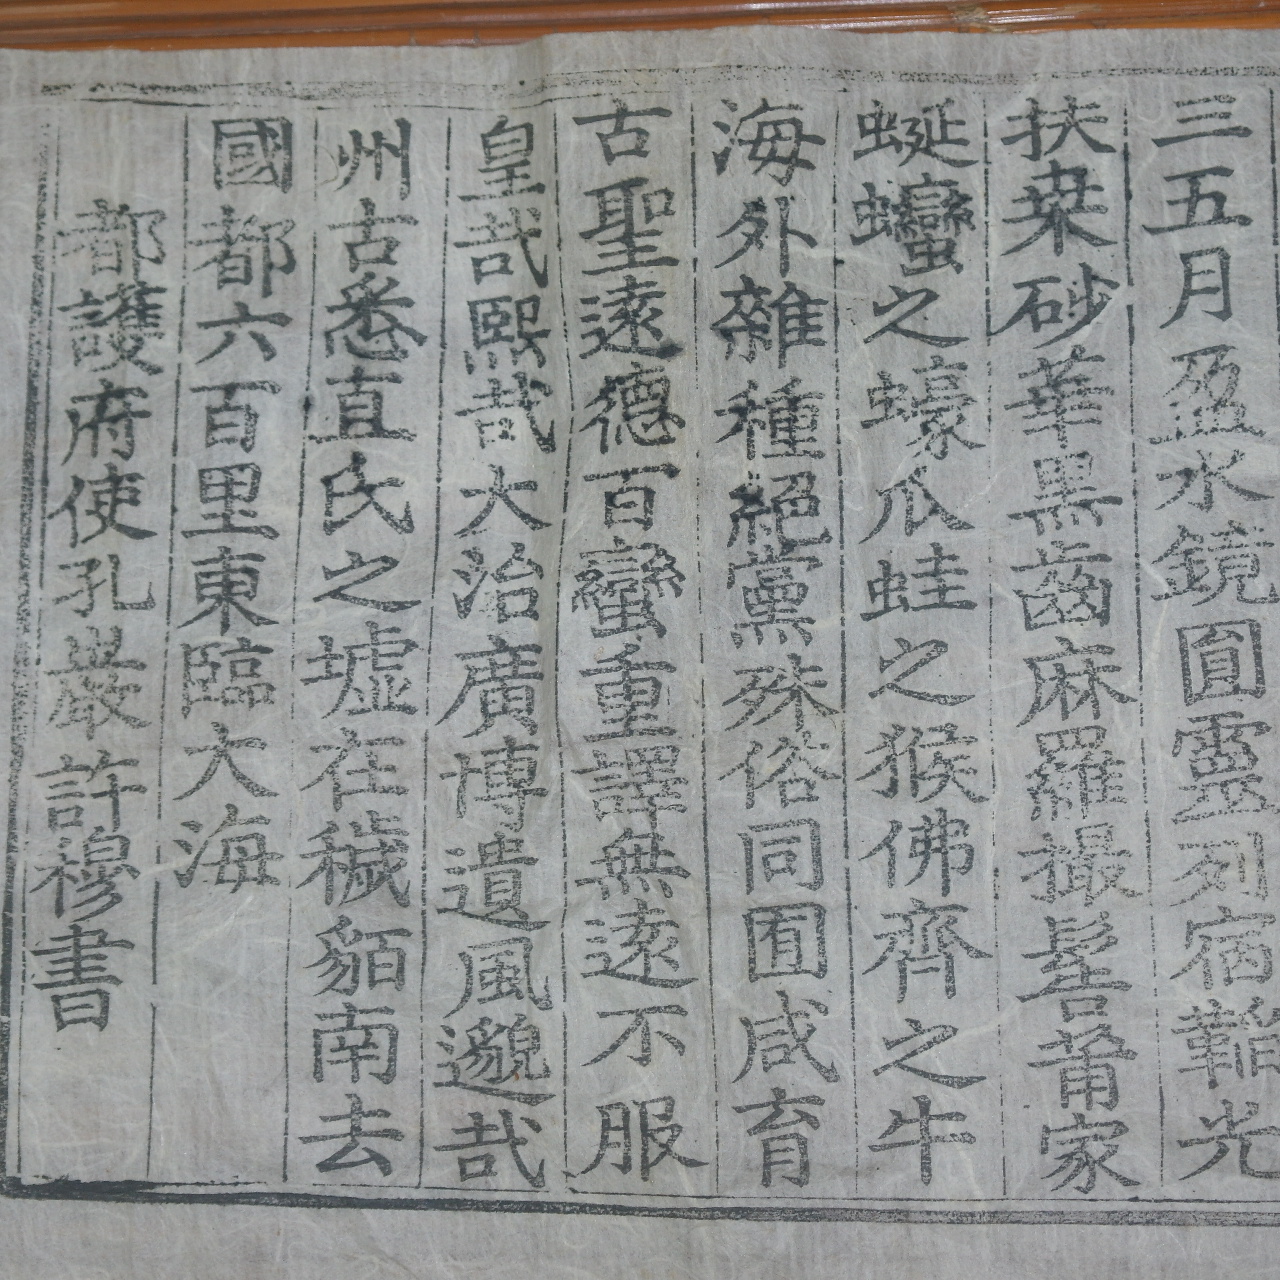 三五月盈水鏡圎靈列宿韜光
扶桒砂華黑齒麻羅撮髻莆家
蜒蠻之蠔爪蛙之猴佛齊之牛
海外雜種絕黨殊俗同囿咸育
古聖遠德百蠻重譯無遠不服
皇哉熙哉大治廣博遺風邈哉
州古悉直氏之墟在穢貊南去
國都六百里東臨大海
都護府使孔巖許穆書